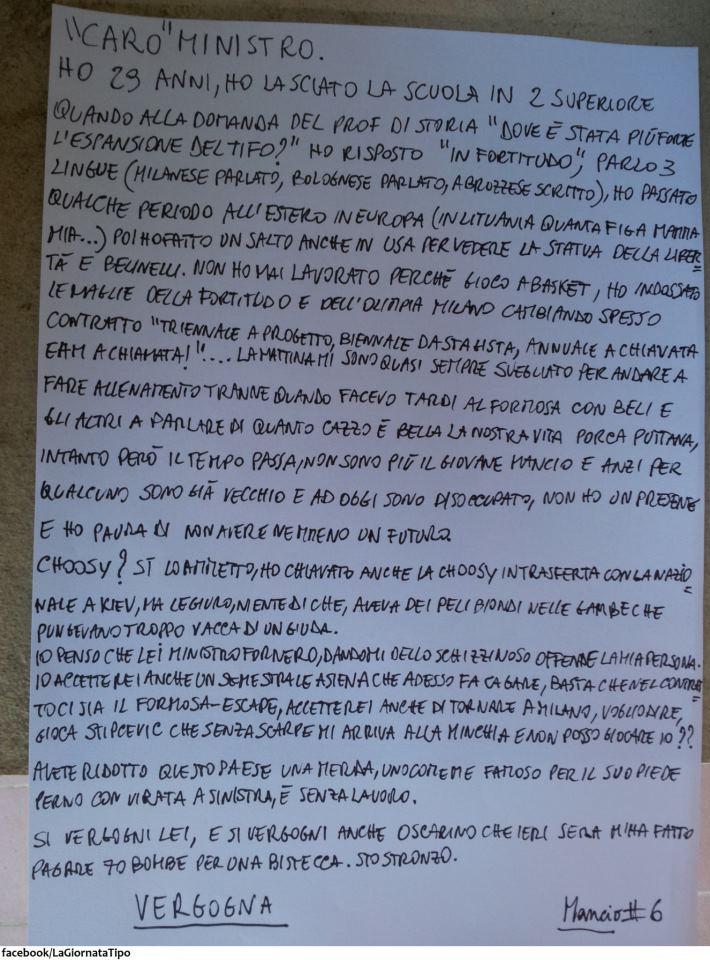 "CARO" MINISTRO.
HO 29 ANNI, HO LASCIATO LA SCUOLA IN 2 SUPERIORE
QUANDO ALLA DOMANDA DEL PROF DI STORIA "DOVE È STATA PIÙ FORTE
L'ESPANSIONE DEL TIFO?" HO RISPOSTO "IN FORTITUDO", PARLO 3
LINGUE (MILANESE PARLATO, BOLOGNESE PARLATO, ABRUZZESE SCRITTO), HO PASSATO
QUALCHE PERIODO ALL'ESTERO IN EUROPA (IN LITUANIA QUANTA FIGA MAMMA
MIA...) POI HO FATTO UN SALTO ANCHE IN USA PER VEDERE LA STATUA DELLA LIBER
TÀ E BELINELLI. NON HO MAI LAVORATO PERCHÈ GIOCO A BASKET, HO INDOSSATO
LE MAGLIE DELLA FORTITUDO E DELL'OLIMPIA MILANO CAMBIANDO SPESSO
CONTRATTO "TRIENNALE A PROGETTO, BIENNALE DA STAGISTA, ANNUALE A CHIAVATA
EHM A CHIAMATA!".... LA MATTINA MI SONO QUASI SEMPRE SVEGLIATO PER ANDARE A
FARE ALLENAMENTO TRANNE QUANDO FACEVO TARDI AL FORMOSA CON BELI E
GLI ALTRI A PARLARE DI QUANTO CAZZO È BELLA LA NOSTRA VITA PORCA PUTTANA,
INTANTO PERÒ IL TEMPO PASSA, NON SONO PIÙ IL GIOVANE MANCIO E ANZI PER
QUALCUNO SONO GIÀ VECCHIO E AD OGGI SONO DISOCCUPATO, NON HO UN PRESENTE
E HO PAURA DI NON AVERE NEMMENO UN FUTURO.
CHOOSY? SÌ LO AMMETTO, HO CHIAVATO ANCHE LA CHOOSY IN TRASFERTA CON LA NAZIO
NALE A KIEV, MA LE GIURO, NIENTE DI CHE, AVEVA DEI PELI BIONDI NELLE GAMBE CHE
PUNGEVANO TROPPO VACCA DI UN GIUDA.
IO PENSO CHE LEI MINISTRO FORNERO, DANDOMI DELLO SCHIZZINOSO OFFENDE LA MIA PERSONA.
IO ACCETTEREI ANCHE UN SEMESTRALE A SIENA CHE ADESSO FA CAGARE, BASTA CHE NEL CONTRAT
TO CI SIA IL FORMOSA-ESCAPE, ACCETTEREI ANCHE DI TORNARE A MILANO, VOGLIO DIRE,
GIOCA STIPCEVIC CHE SENZA SCARPE MI ARRIVA ALLA MINCHIA E NON POSSO GIOCARE IO??
AVETE RIDOTTO QUESTO PAESE UNA MERDA, UNO COME ME FAMOSO PER IL SUO PIEDE
PERNO CON VIRATA A SINISTRA, È SENZA LAVORO.
SI VERGOGNI LEI, E SI VERGOGNI ANCHE OSCARINO CHE IERI SERA M'HA FATTO
PAGARE 70 BOMBE PER UNA BISTECCA. STO STRONZO.
VERGOGNA
Mancio#6
facebook/LaGiornataTipo